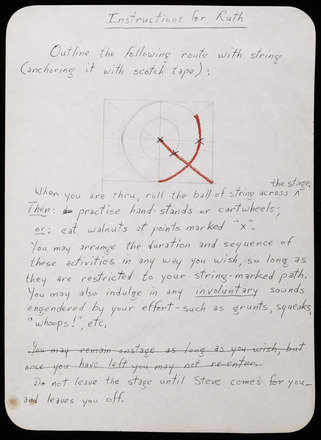 Instructions for Ruth
Outline the following route with string
(anchoring it with scotch tape):
x x
x
When you are thru, roll the ball of string across ^ the stage.
Then: practise hand-stands or cartwheels;
or: eat walnuts at points marked "x".
You may arrange the duration and sequence of
these activities in any way you wish, so long as
they are restricted to your string-marked path.
You may also indulge in any involuntary sounds
engendered by your effort - such as grunts, squeaks,
"whoops!", etc.
You may remain onstage as long as you wish, but
once you have left you may not re-enter.
Do not leave the stage until Steve comes for you
and leaves you off.